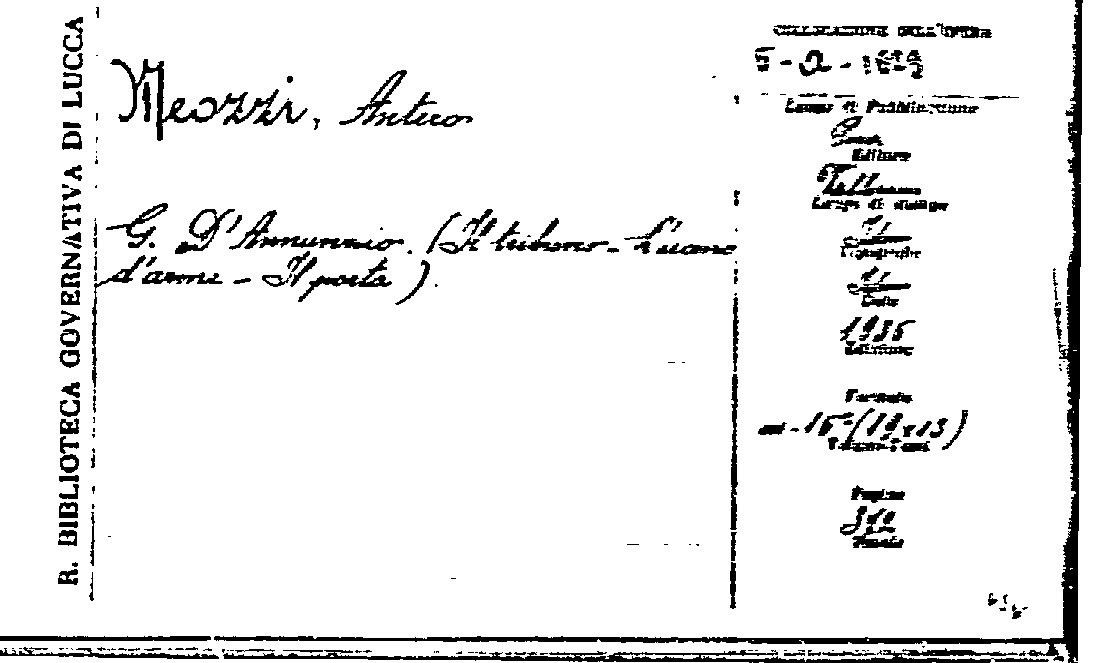 R. BIBLIOTECA GOVERNATIVA DI LUCCA
Meozzi, Antero
G. D'Annunzio. (Il tribuno - L'uomo
d'arme - Il poeta).
COLLOCAZIONE DELL'OPERA
Luogo di Pubblicazione
Pisa
Editore
Vallerini
Luogo di stampa
Tipografia
Data
1935
Edizione
Formato
in-16º (19x13)
Volume-Tomi
Pagine
312